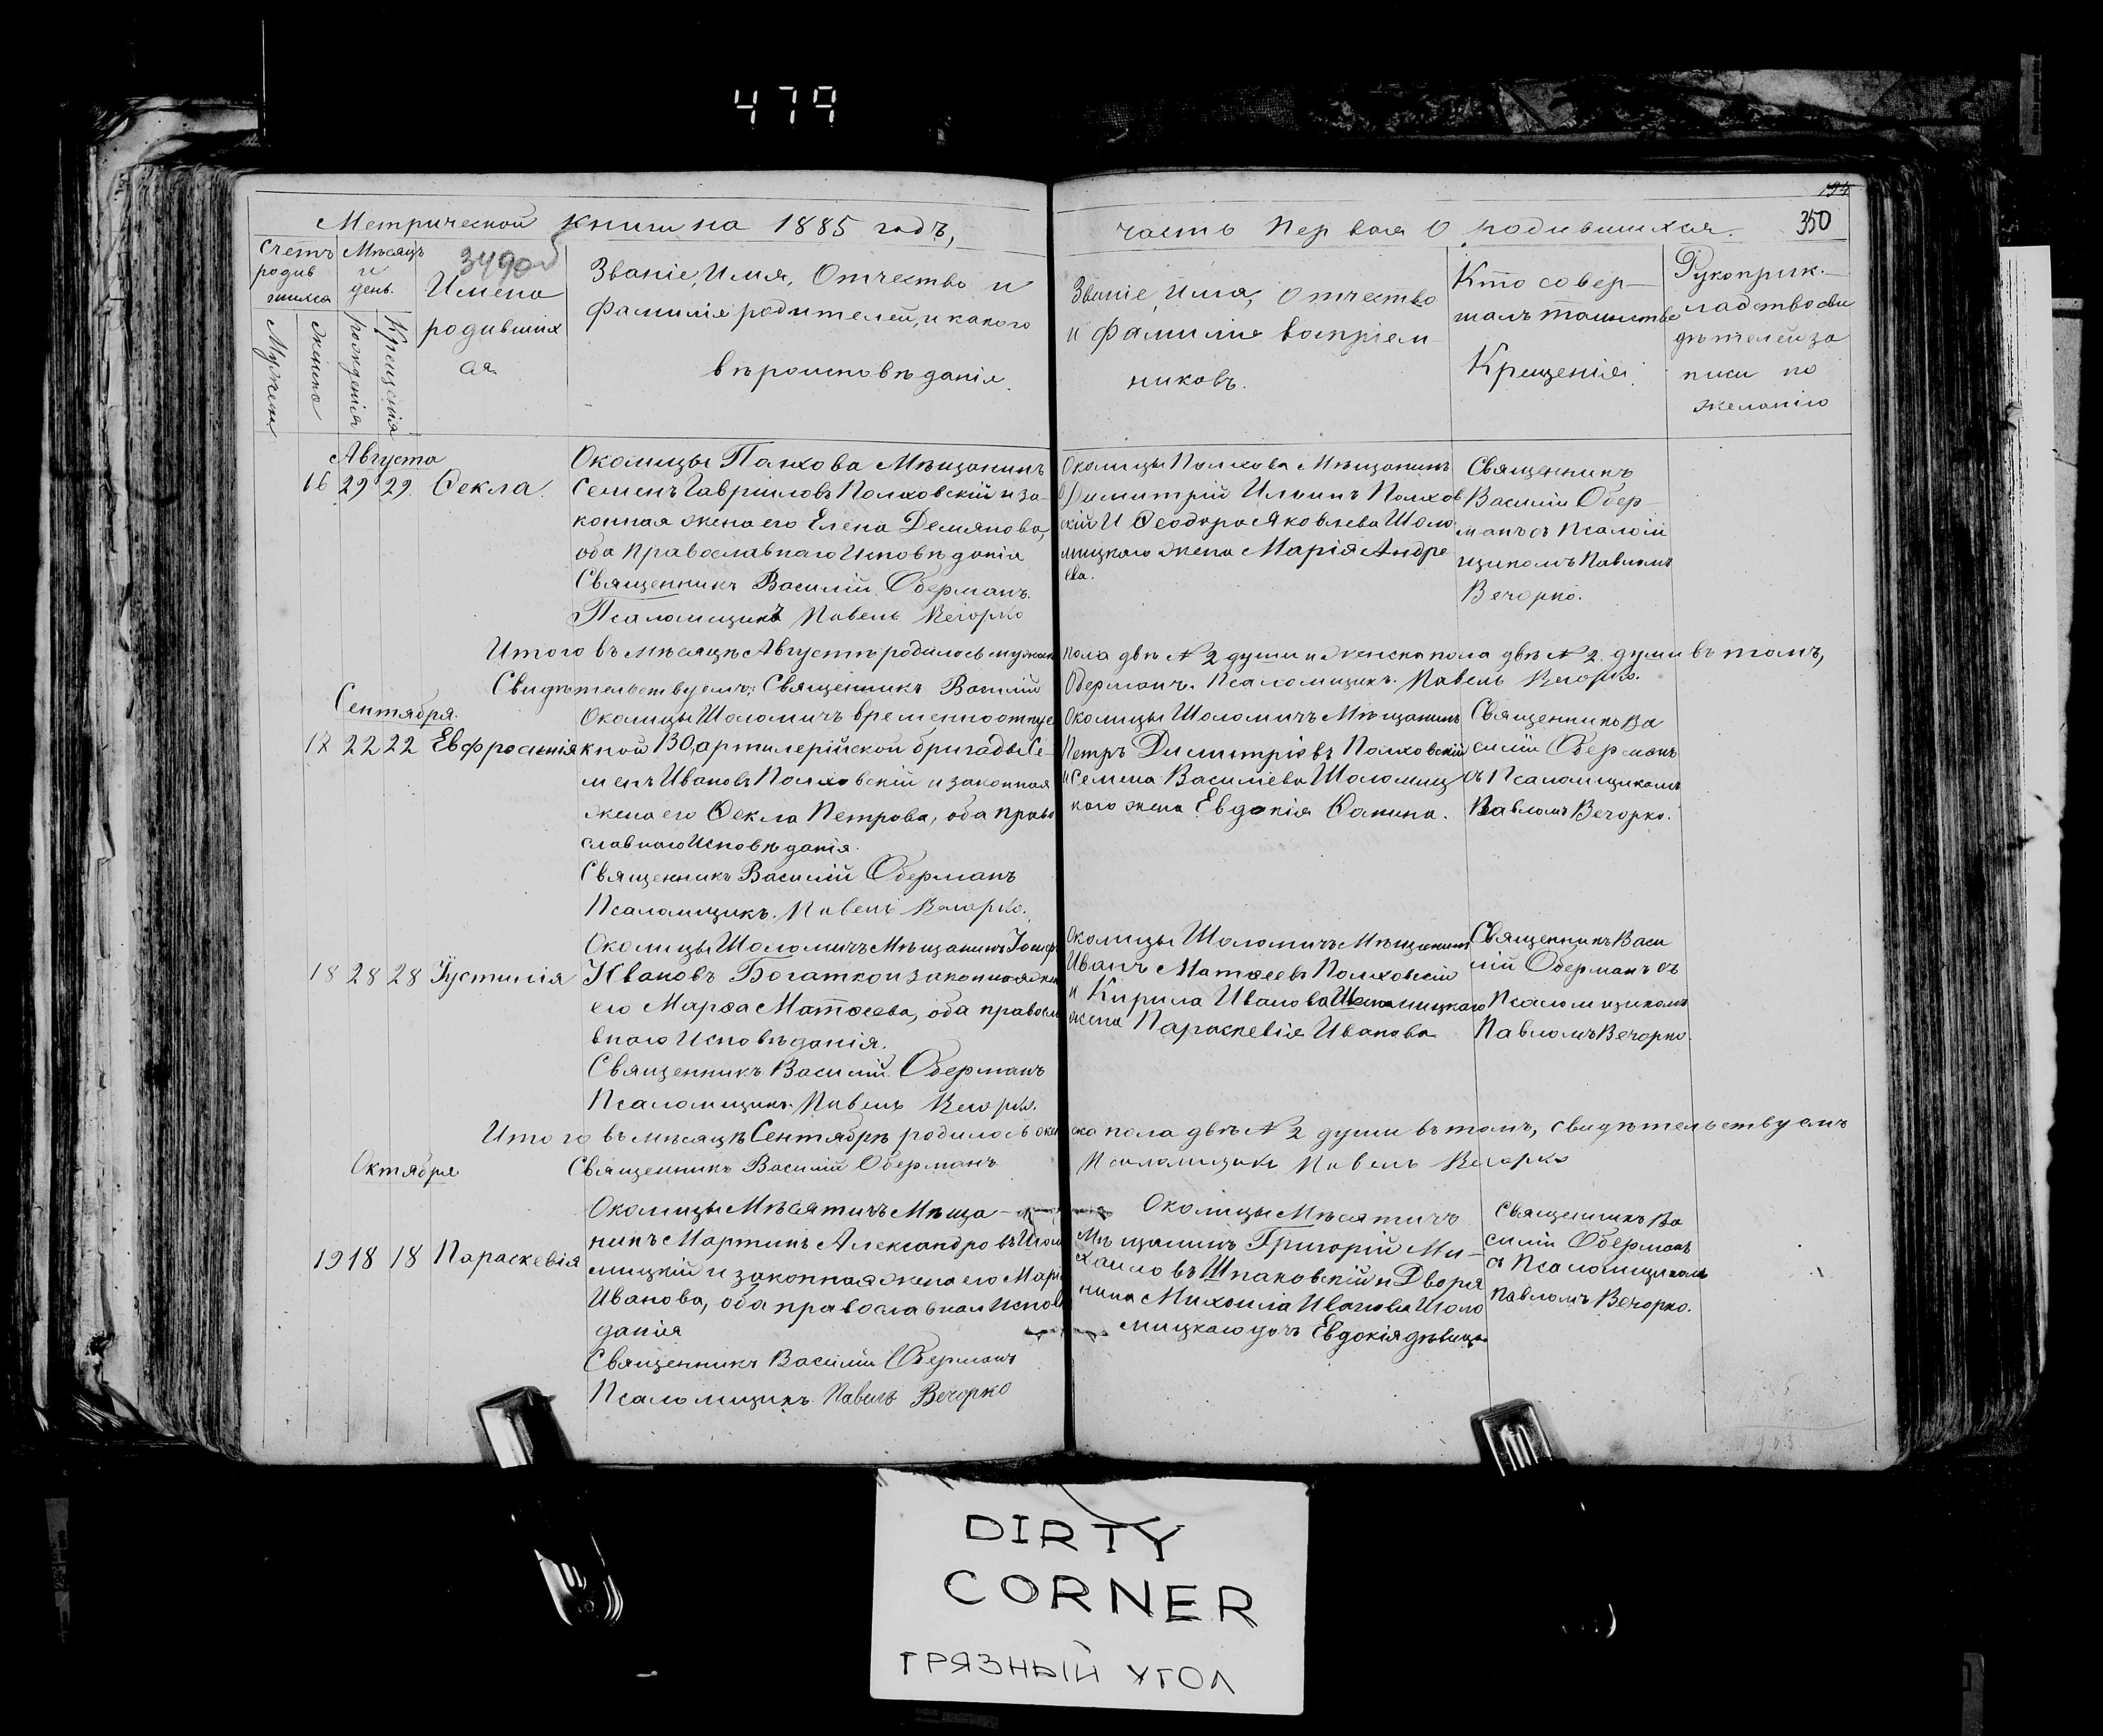 479
194
350
Метрической книги на 1885 годъ,
часть первая О родившихся.
Счетъ родив шихся
Мѣсяцъ и день.
3490
Имена
родивших
ся
Мужска
Женска
рожденія
Крещенія
Званіе, Имя, Отчество и
Фамилія родителей, и какого
вѣроисповѣданія.
Званіе, Имя, Отчество
и Фамилія воспріем
никовъ.
Кто совер-
шалъ таинство
Крещенія.
Рукоприк-
ладство сви
дѣтелей за
писи по
желанію
Августа
16 29 29. Ѳекла.
Околицы Полхова Мѣщанинъ
Семенъ Гавріиловъ Полховскій и за-
конная жена его Елена Демянова,
оба Православнаго Исповѣданія
Священникъ Василій Оберманъ.
Псаломщикъ Павелъ Вечорко
Околицы Полхова Мѣщанинъ
Димитрій Ильинъ Полхов
скій И Ѳеодора Яковлева Шоло
мицкаго жена Марія Андре
ева.
Священникъ
Василій Обер-
манъ съ Псалом
щикомъ Павломъ
Вечорко.
Итого въ мѣсяцѣ Августѣ родилось мужска пола двѣ № 2 души и женска пола двѣ № 2 души въ томъ,
Свидѣтельствуемъ: Священникъ Василій Оберманъ. Псаломщикъ Павелъ Вечорко.
Сентября.
17 22 22 Евфросинія
Околицы Шоломичъ временноотпус
кной 30, артилерійской бригады Се-
менъ Ивановъ Полховскій и законная
жена его Ѳекла Петрова, оба право
славнаго Исповѣданія.
Священникъ Василій Оберманъ
Псаломщикъ Павелъ Вечорко.
Околицы Шоломичъ Мѣщанинъ
Петръ Димитріевъ Полховскій
и Семена Василіева Шоломиц
каго жена Евдокія Фамина.
Священникъ Ва
силій Оберманъ
съ Псаломщикомъ
Павломъ Вечорко.
18 28 28 Іустинія
Околицы Шоломичъ Мѣщанинъ Іосифъ
Ивановъ Богатко и законная жена
его Марѳа Матѳеева, оба правосла
внаго Исповѣданія.
Священникъ Василій Оберманъ
Псаломщикъ Павелъ Вечорко.
Околицы Шоломичъ Мѣщанинъ
Иванъ Матѳеевъ Полховскій
и Кирила Иванова Шоломицкаго
жена Параскевія Иванова
Священникъ Васи
лій Оберманъ съ
Псаломщикомъ
Павломъ Вечорко.
Итого въ мѣсяцѣ Сентябрѣ родилось женска пола двѣ № 2 души въ томъ, свидѣтельствуемъ
Священникъ Василій Оберманъ Псаломщикъ Павелъ Вечорко
Октября
19 18 18 Параскевія
Околицы Мѣсятичъ Мѣща-
нинъ Мартинъ Александровъ Шоло
мицкій и законная жена его Марія
Иванова, оба православнаго Исповѣ
данія
Священникъ Василій Оберманъ
Псаломщикъ Павелъ Вечорко
Околицы Мѣсятичъ
Мѣщанинъ Григорій Ми-
хаиловъ Шпаковскій и Дворя
нина Михаила Иванова Шоло
мицкаго дочь Евдокія дѣвица.
Священникъ Ва
силій Оберманъ
съ Псаломщикомъ
Павломъ Вечорко.
DIRTY
CORNER
ГРЯЗНЫЙ УГОЛ